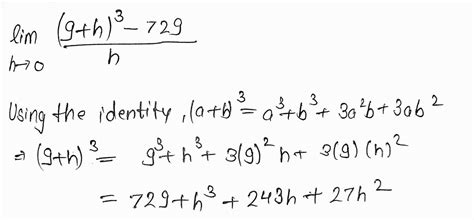 lim (9+h)³ − 729
h→0 h
Using the identity, (a+b)³ = a³+b³+3a²b+3ab²
⇒ (9+h)³ = 9³+h³+3(9)²h+3(9)(h)²
= 729+h³+243h+27h²